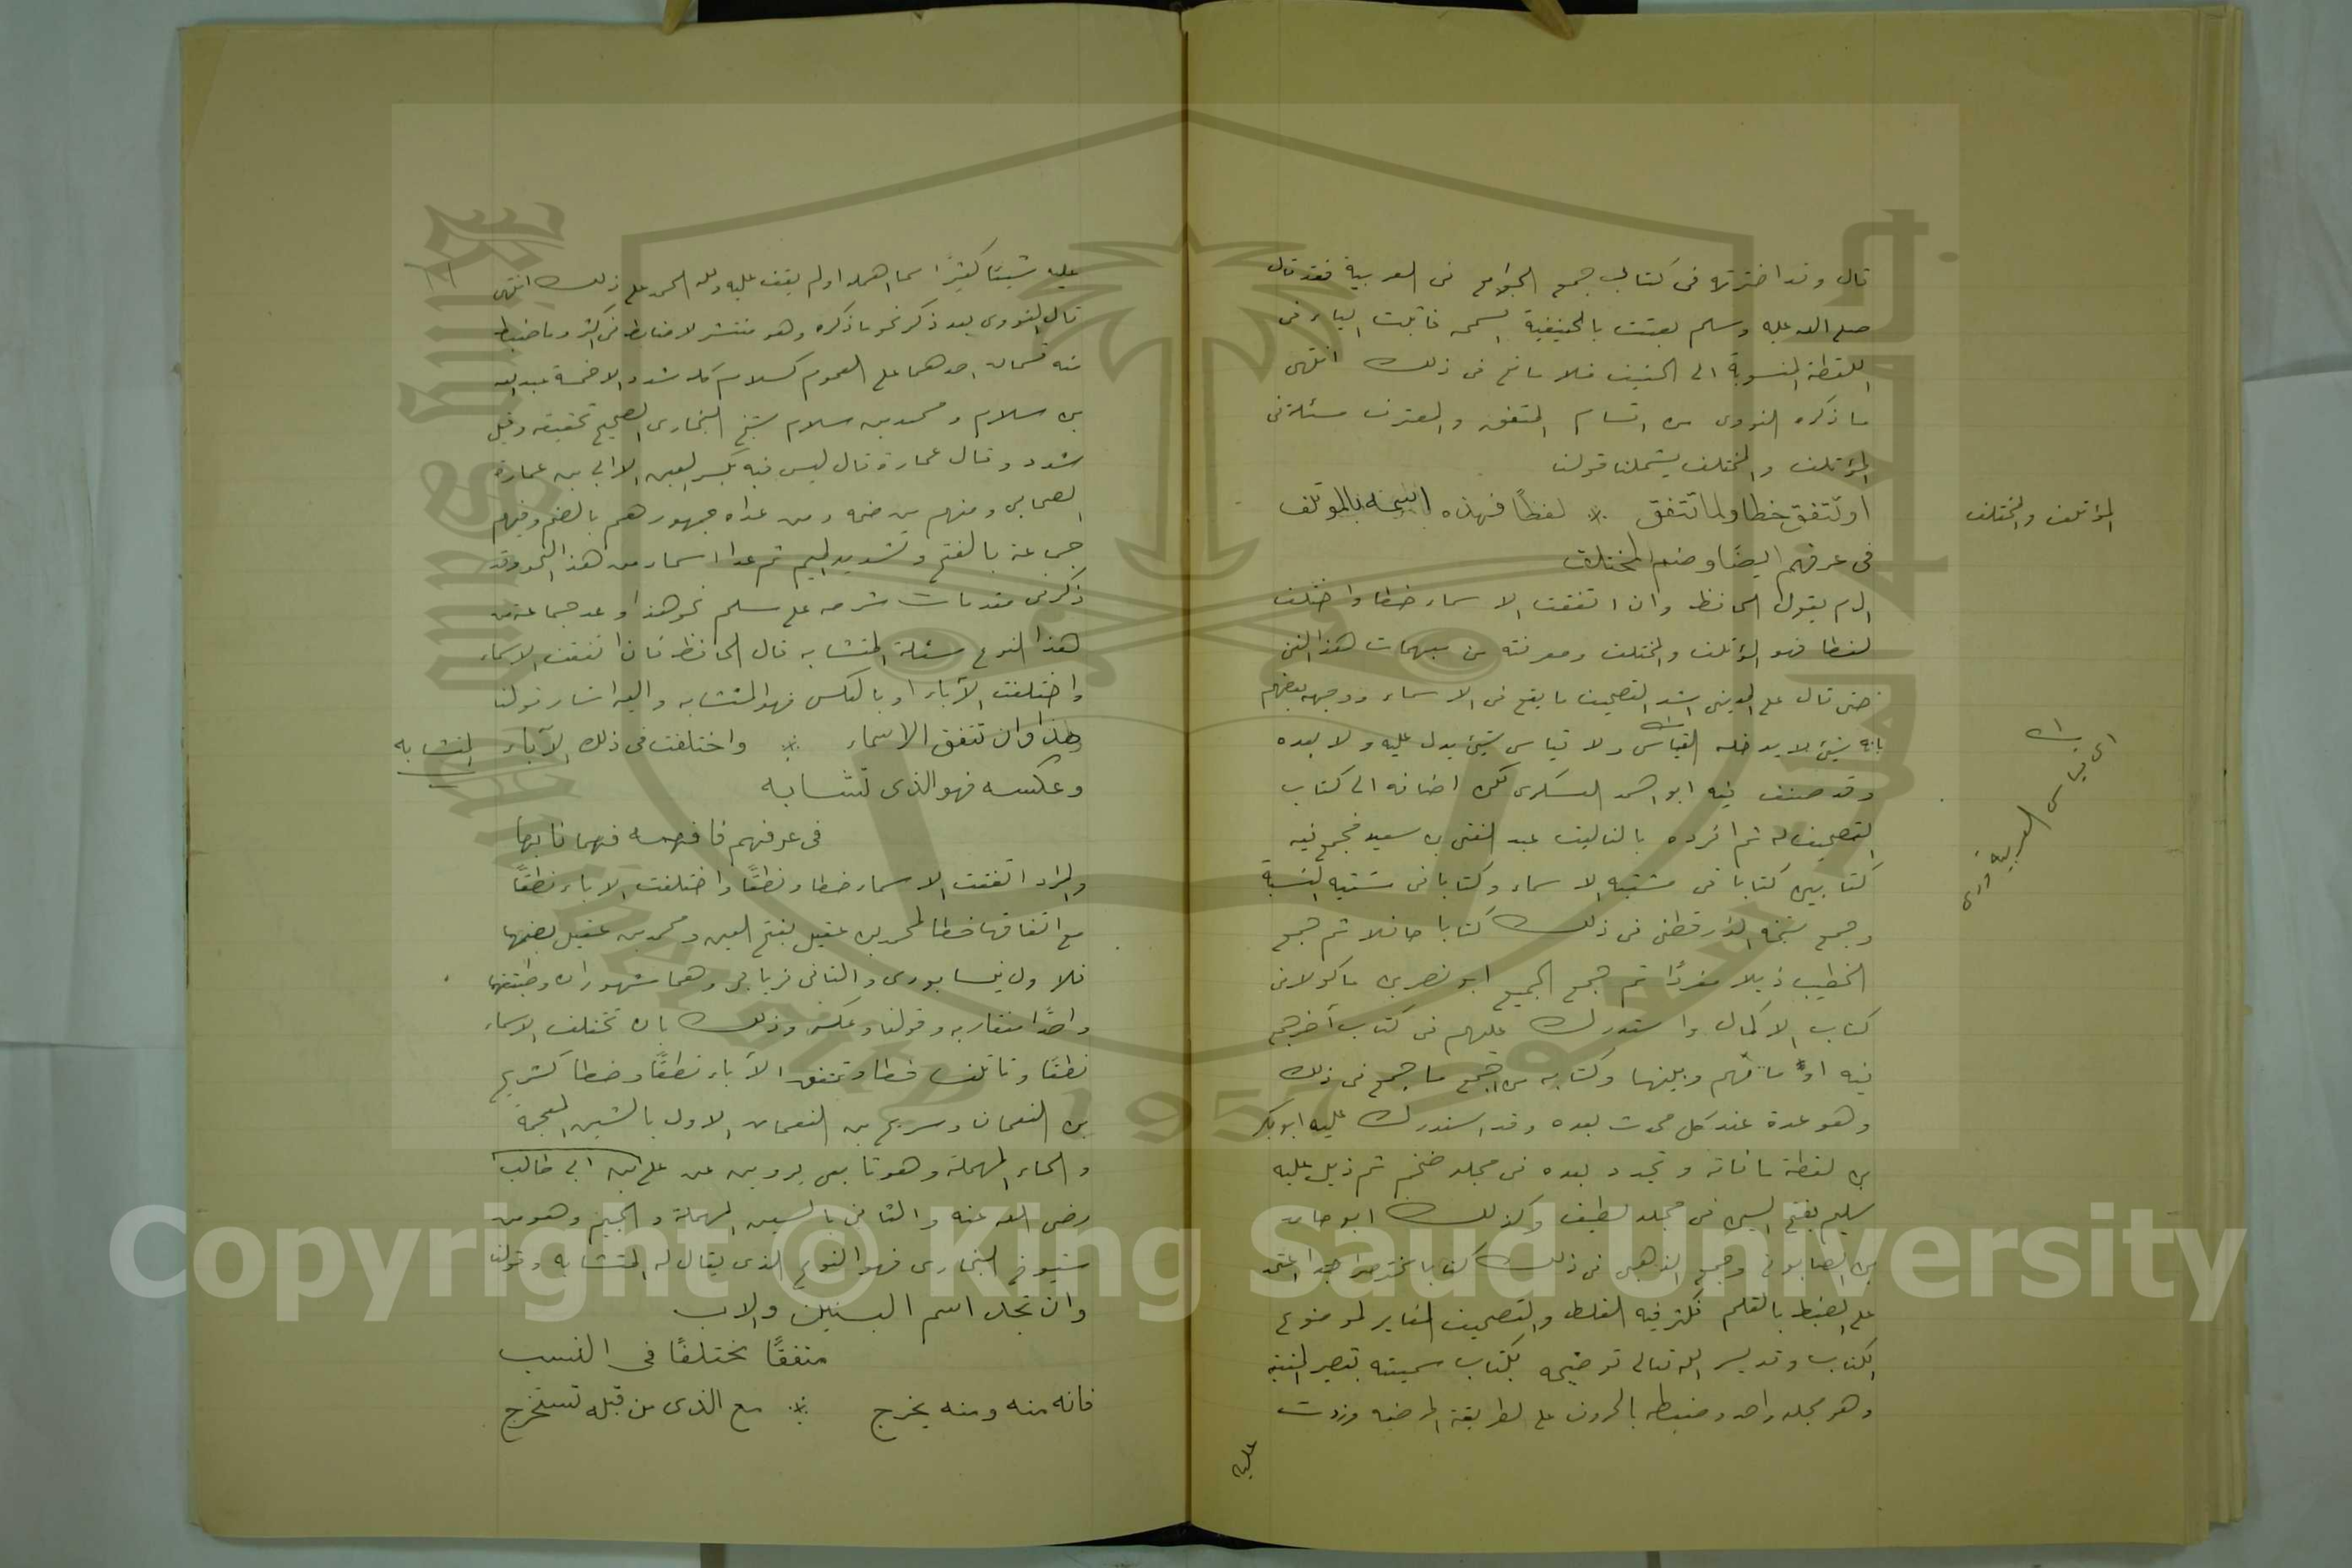 قال وقد اخترته فى كتاب جمع الجوامع فى العربية فقد قال
صلى الله عليه وسلم بعثت بالحنيفية السمحه فاثبت الياء فى
اللفظة المنسوبة الى الحنيف فلا مانع فى ذلك انتهى
ما ذكره النووى من اقسام المتفق والمفترق مسئلة فى
المؤتلف والمختلف يشملنا قولنا
او تتفق خطا ولما تتفق * لفظًا فهذه بالمؤتلف
المؤتلف والمختلف
فى عرفهم ايضًا وضم المختلف
الحافظ وان اتفقت الاسماء خطا واختلف
لفظا فهو المؤتلف والمختلف ومعرفته من مهمات هذا الفن
حتى قال على المدينى اشد التصحيف ما يقع فى الاسماء ووجهه بعضهم
بانه شئ لا يدخله القياس ولا قياس شئ يدل عليه ولا بعده
وقد صنف فيه ابو احمد العسكرى لكن اضافه الى كتاب
التصحيف له ثم افرده بالتاليف عبد الغنى بن سعيد فجمع فيه
كتابين كتابا فى مشتبه الاسماء وكتابا فى مشتبه النسبة
وجمع شيخه الدارقطنى فى ذلك كتابا حافلا ثم جمع
الخطيب ذيلا مفردًا ثم جمع الجميع ابو نصر بن ماكولا فى
كتاب الاكمال واستدرك عليهم فى كتاب آخر جمع
فيه اوهامهم وبينها وكتابه من اجمع ما جمع فى ذلك
وهو عمدة عند كل محدث بعده وقد استدرك عليه ابو بكر
بن نقطة ما فاته وتجدد بعده فى مجلد ضخم ثم ذيل عليه
سليم بفتح السين فى مجلد لطيف وكذلك ابو حامد
بن الصابونى وجمع الذهبى فى ذلك كتابا مختصرا جدا اعتمد
على الضبط بالقلم فكثر فيه الغلط والتصحيف المغاير لموضوع
الكتاب وقد يسر الله تعالى توضيحه بكتاب سميته تبصير المنتبه
وهو مجلد واحد وضبطه بالحروف على الطريقة المرضيه وزدت
عليه
عليه شيئا كثيرًا مما اهمله او لم يقف عليه ولله الحمد على ذلك انتهى
قال النووى بعد ذكر نحو ما ذكره وهو منتشر لا ضابط فى اكثره وما ضبط
منه قسمان احدهما على العموم كسلام كله مشدد الا خمسة عبد الله
بن سلام ومحمد بن سلام شيخ البخارى الصحيح تخفيفه وقيل
مشدد وقال عمارة قال ليس فيه بكسر العين الا ابى بن عمارة
الصحابى ومنهم من ضمه ومن عداه جمهورهم بالضم وفيهم
جماعة بالفتح وتشديد الميم ثم عد اسماء من هذا النحو وقد
ذكر فى مقدمات شرحه على مسلم نحو هذا وعد جماعة من
هذا النوع مسئلة المتشابه قال الحافظ فان اتفقت الاسماء
واختلفت الآباء او بالعكس فهو المتشابه واليه اشار قولنا
هذا وان تتفق الاسماء * واختلفت فى ذلك الآباء
المتشابه
وعكسه فهو الذى تشابه
فى عرفهم فافهمه فهما نابها
والمراد اتفقت الاسماء خطا ونطقًا واختلفت الاباء نطقًا
مع اتفاقها خطا لمحمد بن عقيل بفتح العين ومحمد بن عقيل بضمها
فلاول نيسابورى والثانى فريابى وهما مشهوران وطبقتهما
متقاربه وقولنا وعكسه وذلك بان تختلف الاسماء
نطقًا وتاتلف خطا وتتفق الآباء نطقًا وخطا كشريح
بن النعمان وسريج بن النعمان الاول بالشين المعجمة
والحاء المهملة وهو تابعى يروى عن على بن ابى طالب
رضى الله عنه والثانى بالسين المهملة والجيم وهو من
شيوخ البخارى فهو النوع الذى يقال له المتشابه وقولنا
وان تجد اسم البنين والاب
متفقًا مختلفًا فى النسب
فانه منه ومنه يخرج * مع الذى من قبله تستخرج